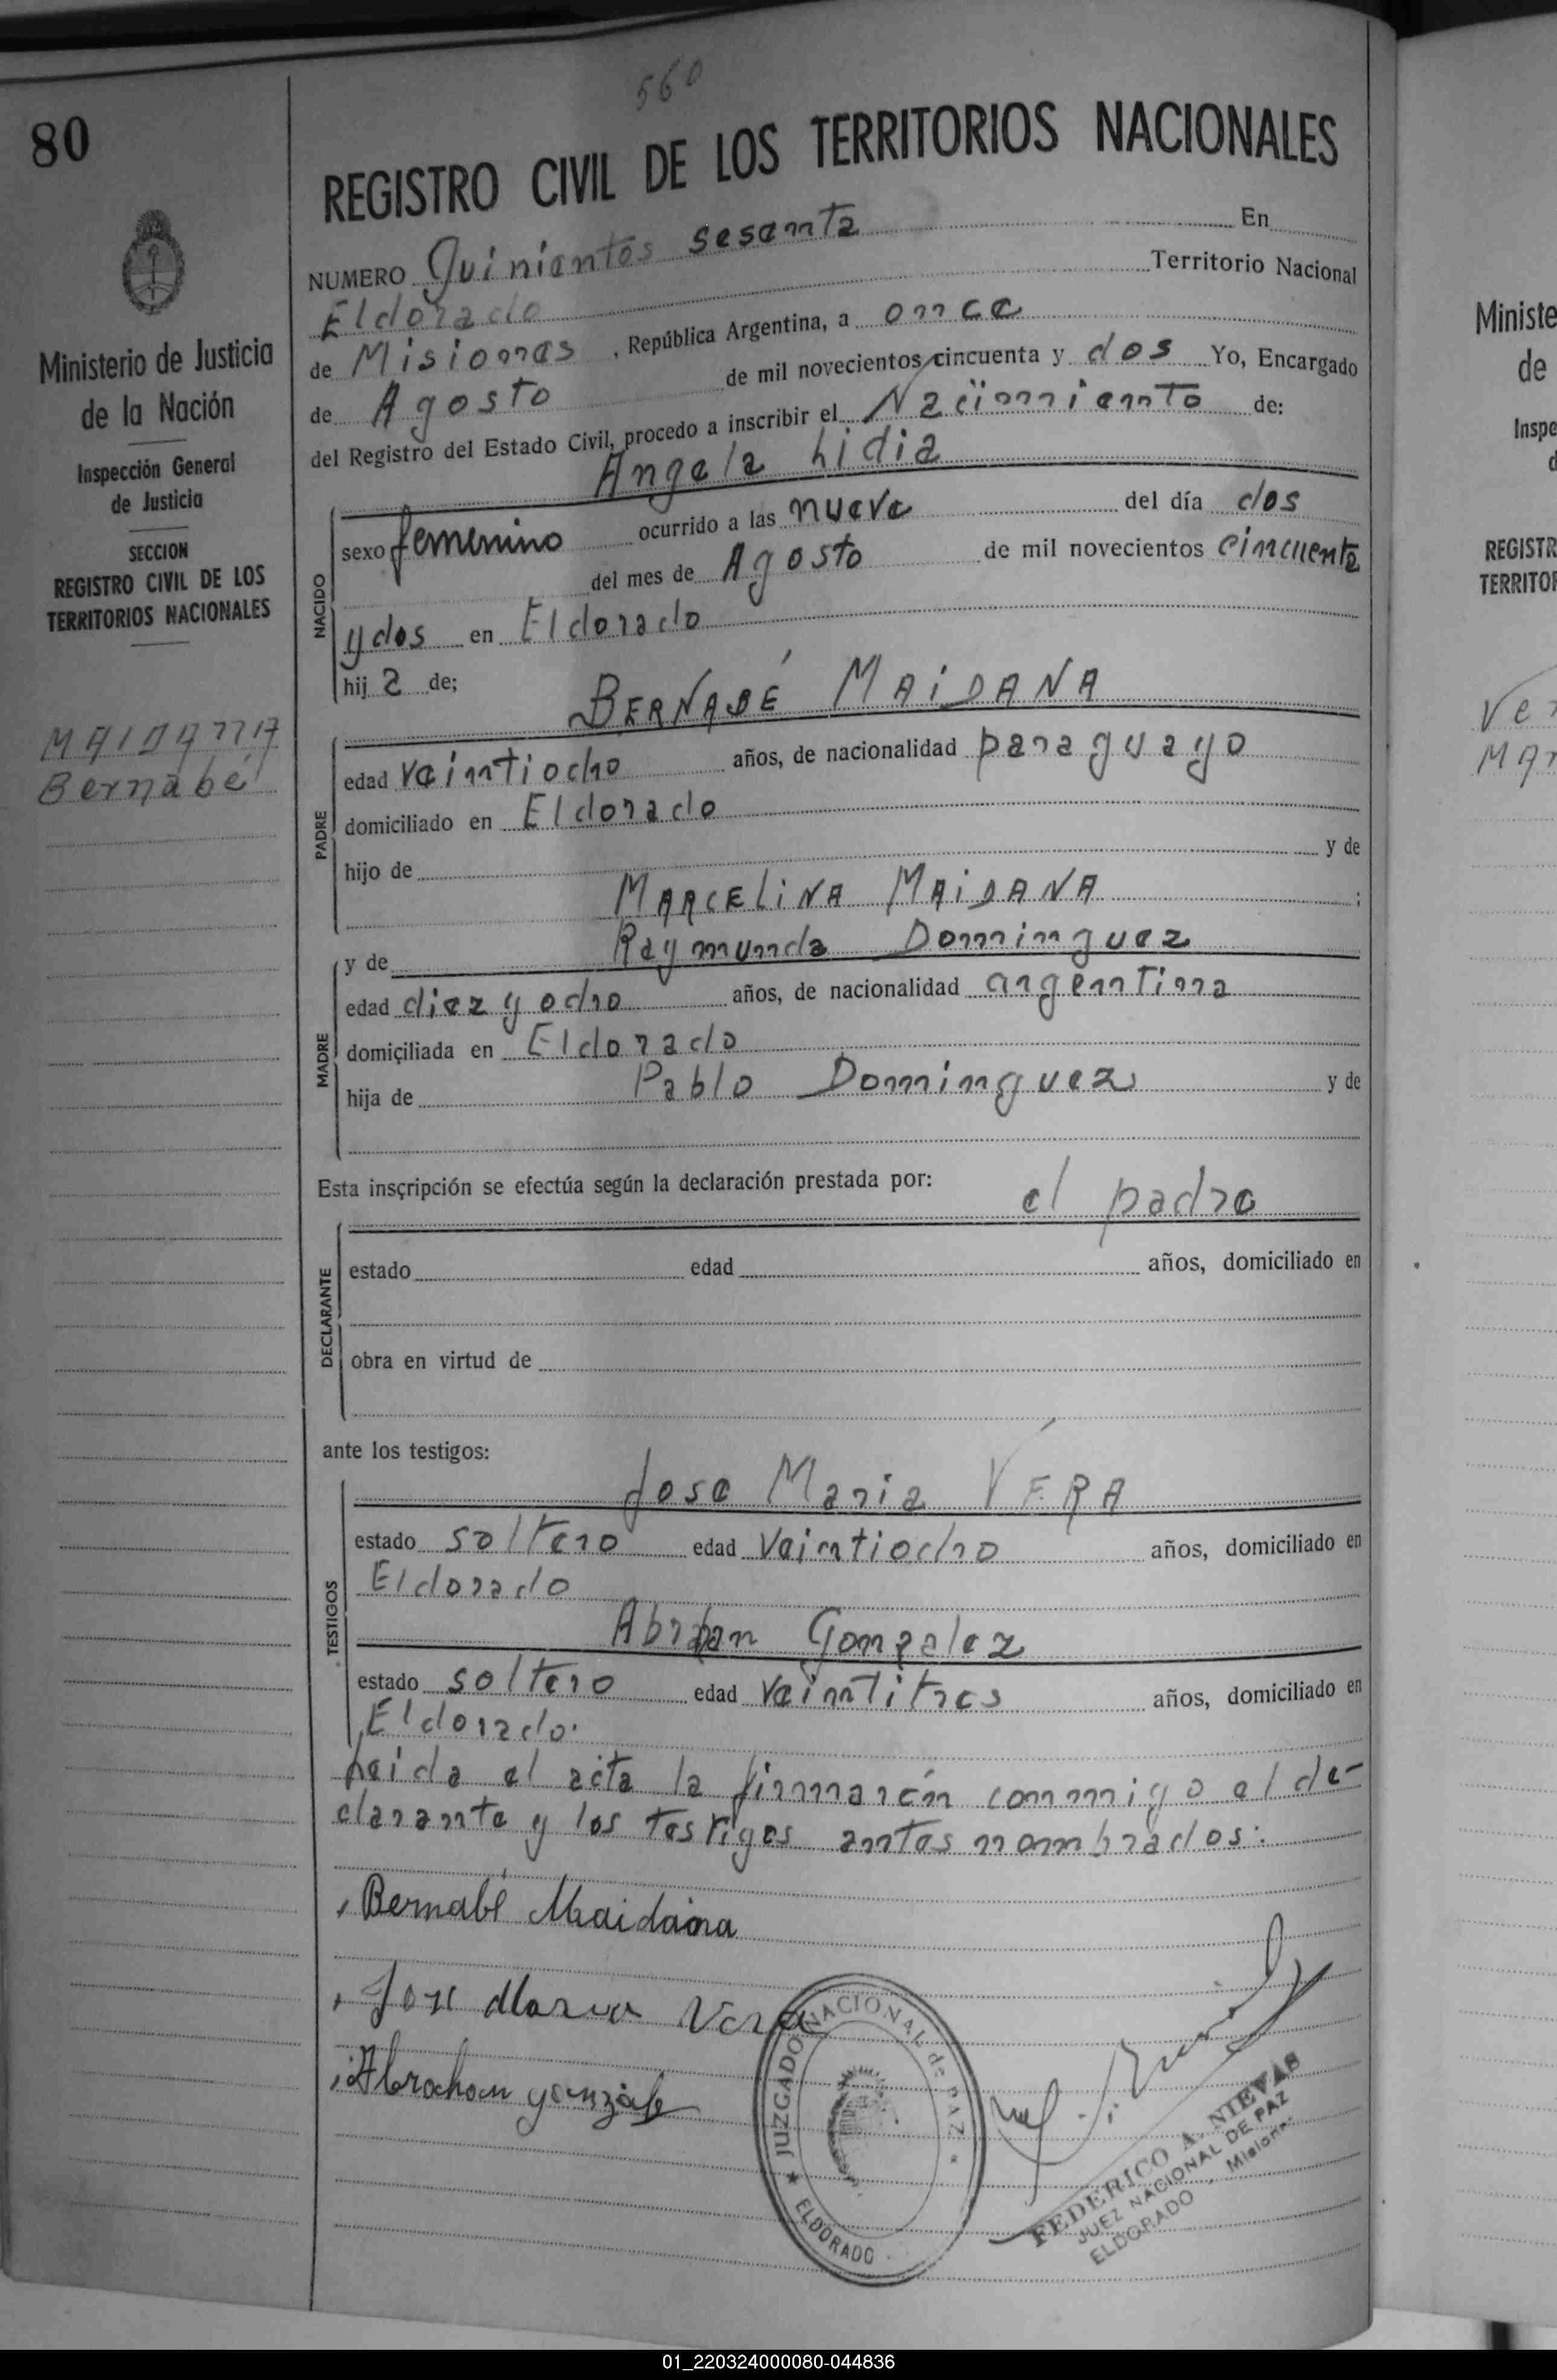 560
80
REGISTRO CIVIL DE LOS TERRITORIOS NACIONALES
NUMERO Quinientos sesenta En
Eldorado Territorio Nacional
de Misiones, República Argentina, a once
de Agosto de mil novecientos cincuenta y dos Yo, Encargado
del Registro del Estado Civil, procedo a inscribir el Nacimiento de:
Angela Lidia
NACIDO
sexo femenino ocurrido a las nueve del día dos
del mes de Agosto de mil novecientos cincuenta
y dos en Eldorado
hij a de;
BERNABÉ MAIDANA
PADRE
edad veintiocho años, de nacionalidad paraguayo
domiciliado en Eldorado
hijo de y de
MARCELINA MAIDANA ;
MADRE
y de Raymunda Dominguez
edad diez y ocho años, de nacionalidad argentina
domiçiliada en Eldorado
hija de Pablo Dominguez y de
Esta insçripción se efectúa según la declaración prestada por:
el padre
DECLARANTE
estado edad años, domiciliado en
obra en virtud de
ante los testigos:
Jose Maria VERA
TESTIGOS
estado soltero edad veintiocho años, domiciliado en
Eldorado
Abrahan Gonzalez
estado soltero edad veintitres años, domiciliado en
Eldorado.
Leida el acta la firmarón conmigo el de-
clarante y los testigos antes nombrados.
Bernabé Maidana
Jose Maria Vera
Abrahan gonzale
JUZGADO NACIONAL de PAZ
ELDORADO
FEDERICO A. NIEVAS
JUEZ NACIONAL DE PAZ
ELDORADO - Misiones
Ministerio de Justicia
de la Nación
Inspección General
de Justicia
SECCION
REGISTRO CIVIL DE LOS
TERRITORIOS NACIONALES
MAIDANA
Bernabé
Ministe
de
Inspe
d
REGISTR
TERRITOR
Ver
MAr
01_220324000080-044836